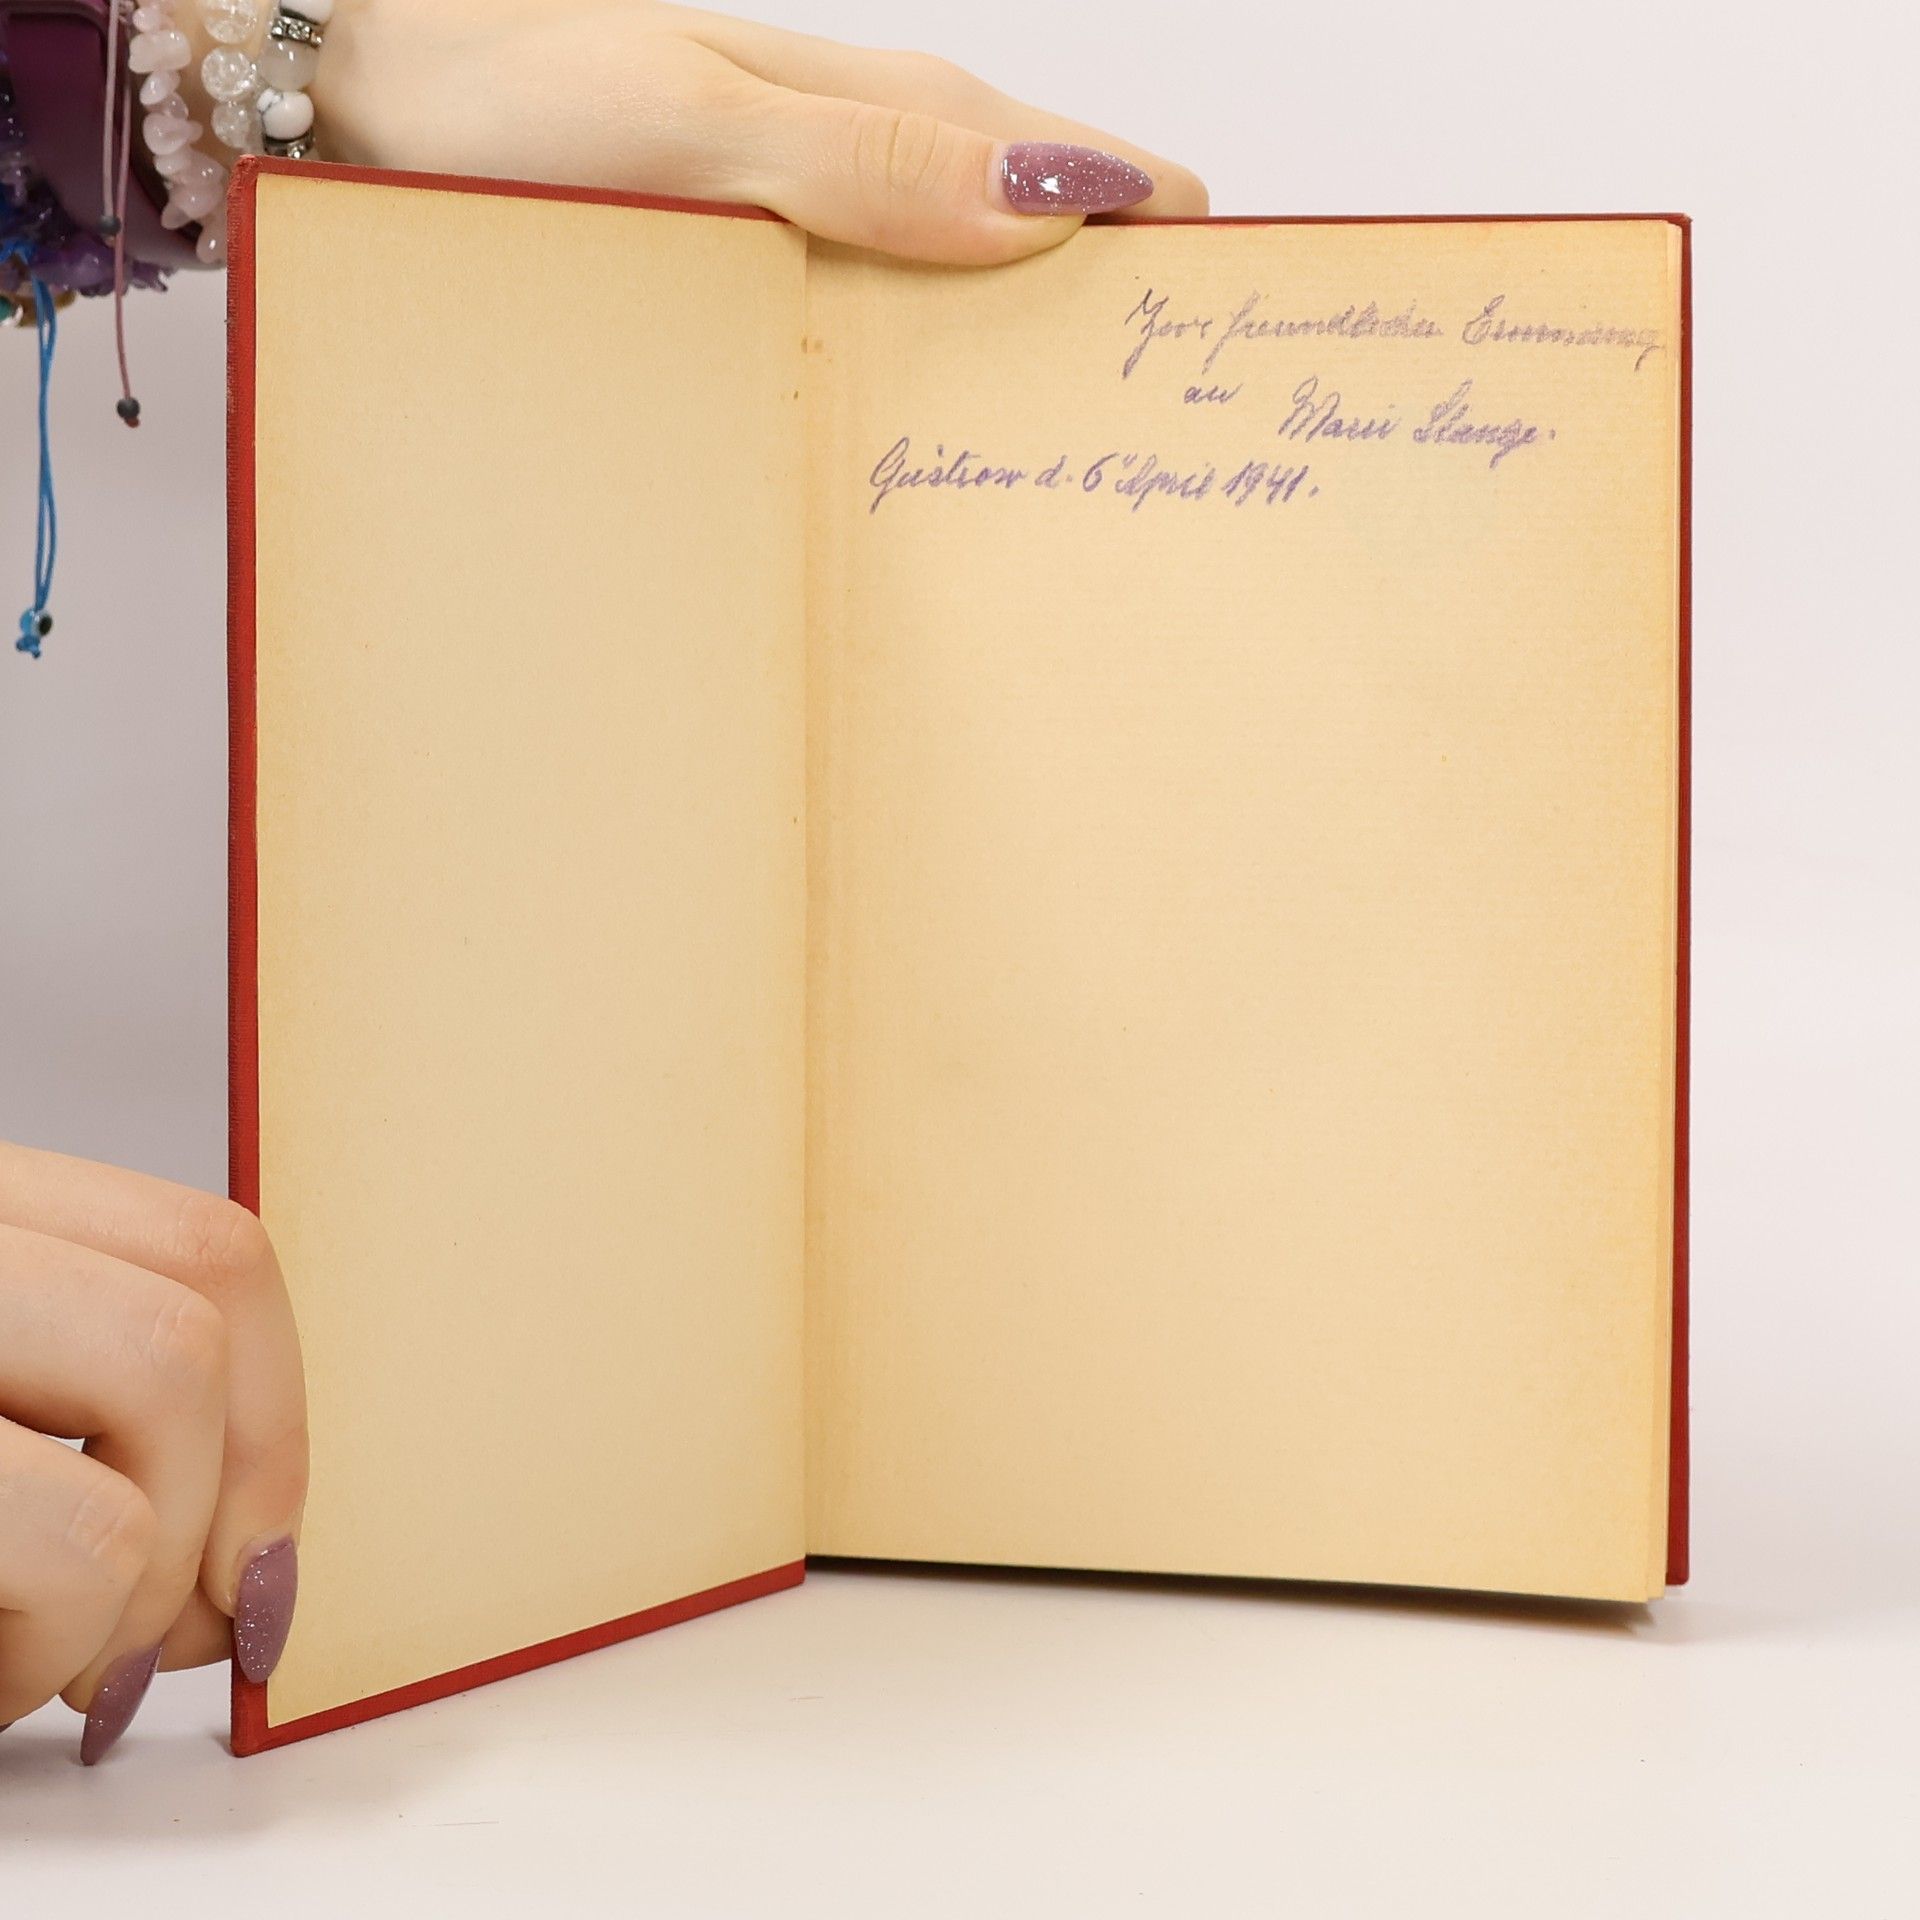 Zur freundlichen Erinnerung
an Marie Stange.
Güstrow d. 6" April 1941.